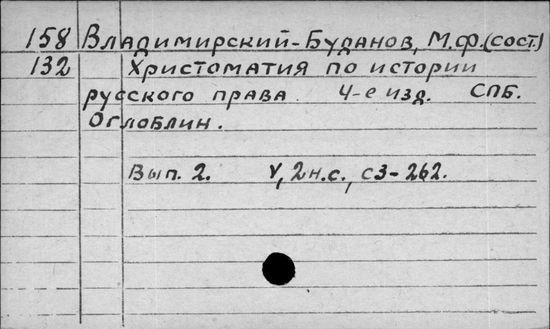 158 Владимирский-Буданов, М.Ф.(сост.)
132 Христоматия по истории
русского права. 4-е изд. СПБ.
Оглоблин.
Вып. 2. V, 2н.с., с3-262.